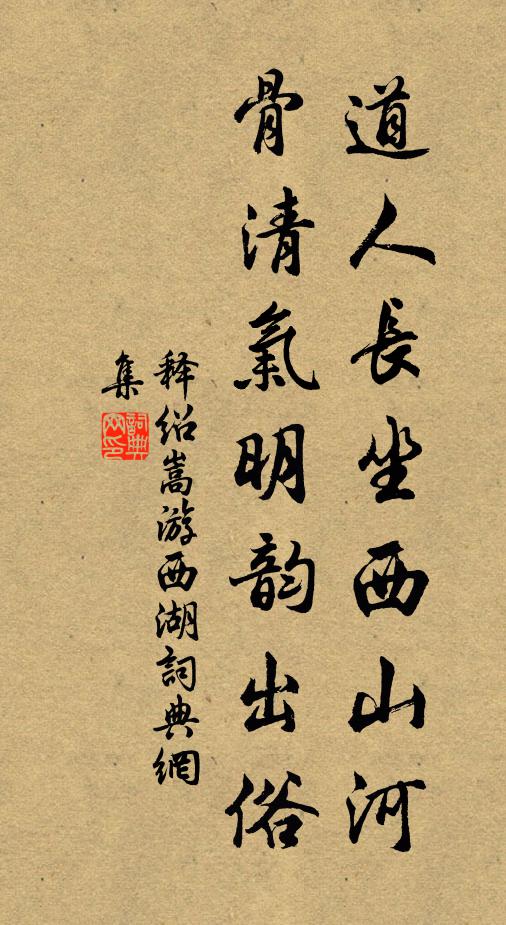 道人長坐西山河
骨清氣明韵出俗
释绍嵩游西湖詞典網
集
詞典网印